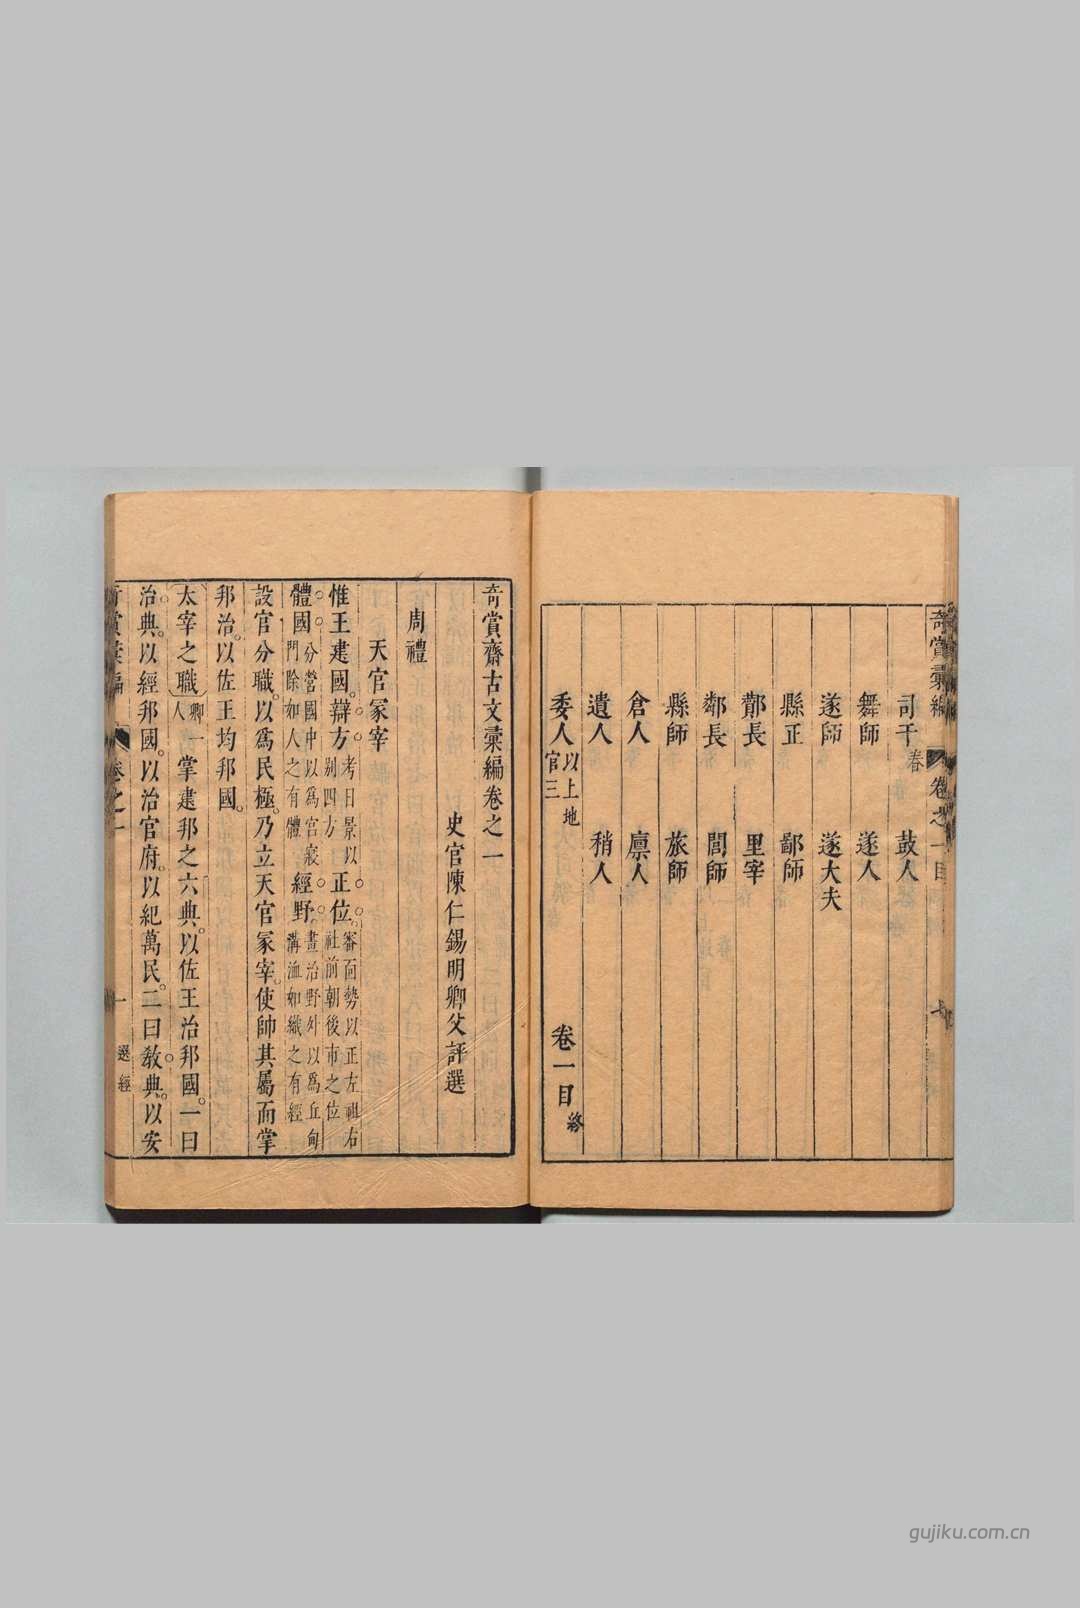 奇賞彙編
卷之一目
司干春 鼓人
舞師 遂人
遂師 遂大夫
縣正 鄙師
酇長 里宰
鄰長 閭師
縣師 旅師
倉人 廩人
遺人 稍人
委人以上地官三 卷一目終
奇賞齋古文彙編卷之一
史官陳仁錫明卿父評選
周禮
天官冢宰
惟王建國。辯方考日景以别四方正位。審面勢以正左祖右社前朝後市之位
體國。分營國中以為宮寢門除如人之有體經野。畫治野外以為丘甸溝洫如織之有經
設官分職。以為民極。乃立天官冢宰。使帥其屬而掌
邦治。以佐王均邦國。
太宰之職卿一人掌建邦之六典。以佐王治邦國。一曰
治典。以經邦國。以治官府。以紀萬民。二曰教典。以安
奇賞彙編 卷之一 一 選經
gujiku.com.cn